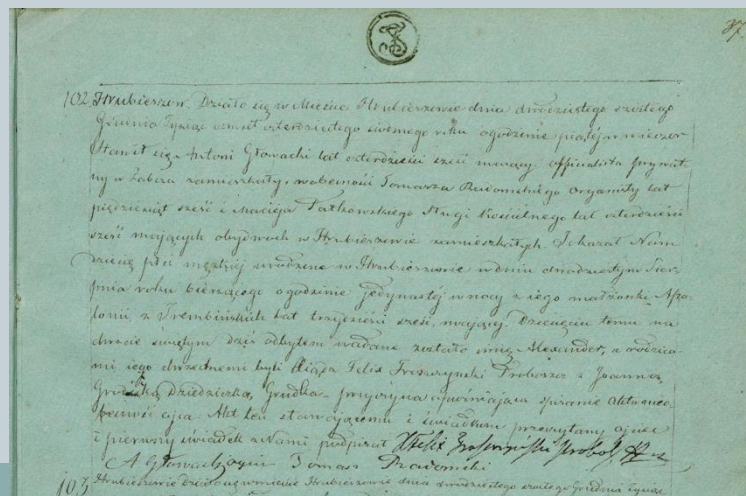 37
102 Hrubieszow. Działo się w Mieście Hrubieszowie dnia dwudziestego szóstego
Grudnia Tysiąc osmset czterdziestego siodmego roku o godzinie piątej w wieczor
Stawił się Antoni Głowacki lat czterdzieści sześć mający officialista prywat
ny w zamieszkały, w obecności Tomasza Radomskiego Organisty lat
pięćdziesiąt sześć i Macieja Tatkowskiego Sługi Kościelnego lat czterdzieści
sześć mających obydwoch w Hrubieszowie zamieszkałych. Okazał Nam
dziecię płci męzkiej urodzone w Hrubieszowie w dniu dwudziestym Sier
pnia roku bieżącego o godzinie jedynastej w nocy z iego małżonki Apo
lonii z Trembińskich lat trzydzieści sześć mającej. Dziecięciu temu na
chrzcie świętym dziś odbytem nadane zostało imię Alexander, a rodzica
mi iego chrzestnemi byli Xiądz Felix Proboszcz z Joanną
Grodzką Dziedziczką Gródka przyczyna opóźniająca spisanie Aktu
ojca. Akt ten stawającemu i świadkom przeczytany ojciec
i pierwszy świadek z Nami podpisał Xfelix Probo
A Głowacki ojciec Tomasz Radomski
103 Hrubieszow Działo się w Mieście Hrubieszowie dnia dwudziestego szóstego Grudnia Tysiąc